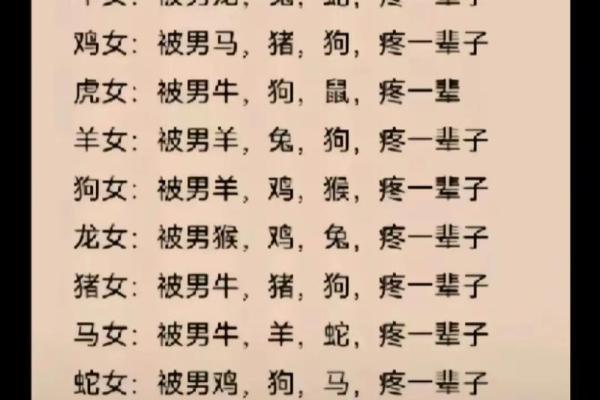 女：被男龙，兔，蛇，疼一辈子
鸡女：被男马，猪，狗，疼一辈子
虎女：被男牛，狗，鼠，疼一辈
羊女：被男羊，兔，狗，疼一辈子
狗女：被男羊，鸡，猴，疼一辈子
龙女：被男猴，鸡，兔，疼一辈子
猪女：被男牛，猪，狗，疼一辈子
马女：被男牛，羊，蛇，疼一辈子
蛇女：被男鸡，狗，马，疼一辈子